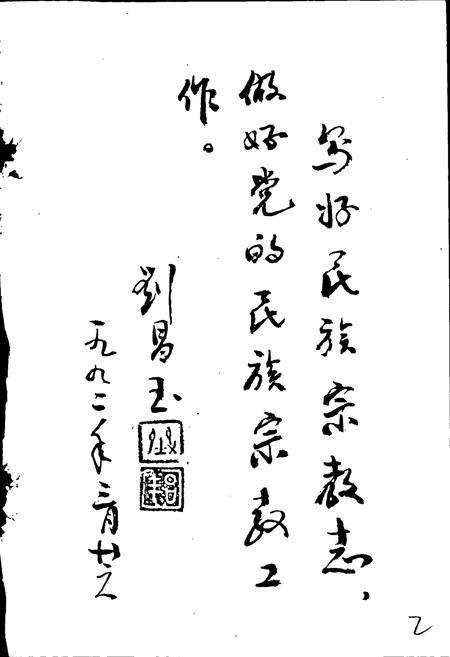 写好民族宗教志、
做好党的民族宗教工
作。
劉昌玉
一九九二年三月廿六
2